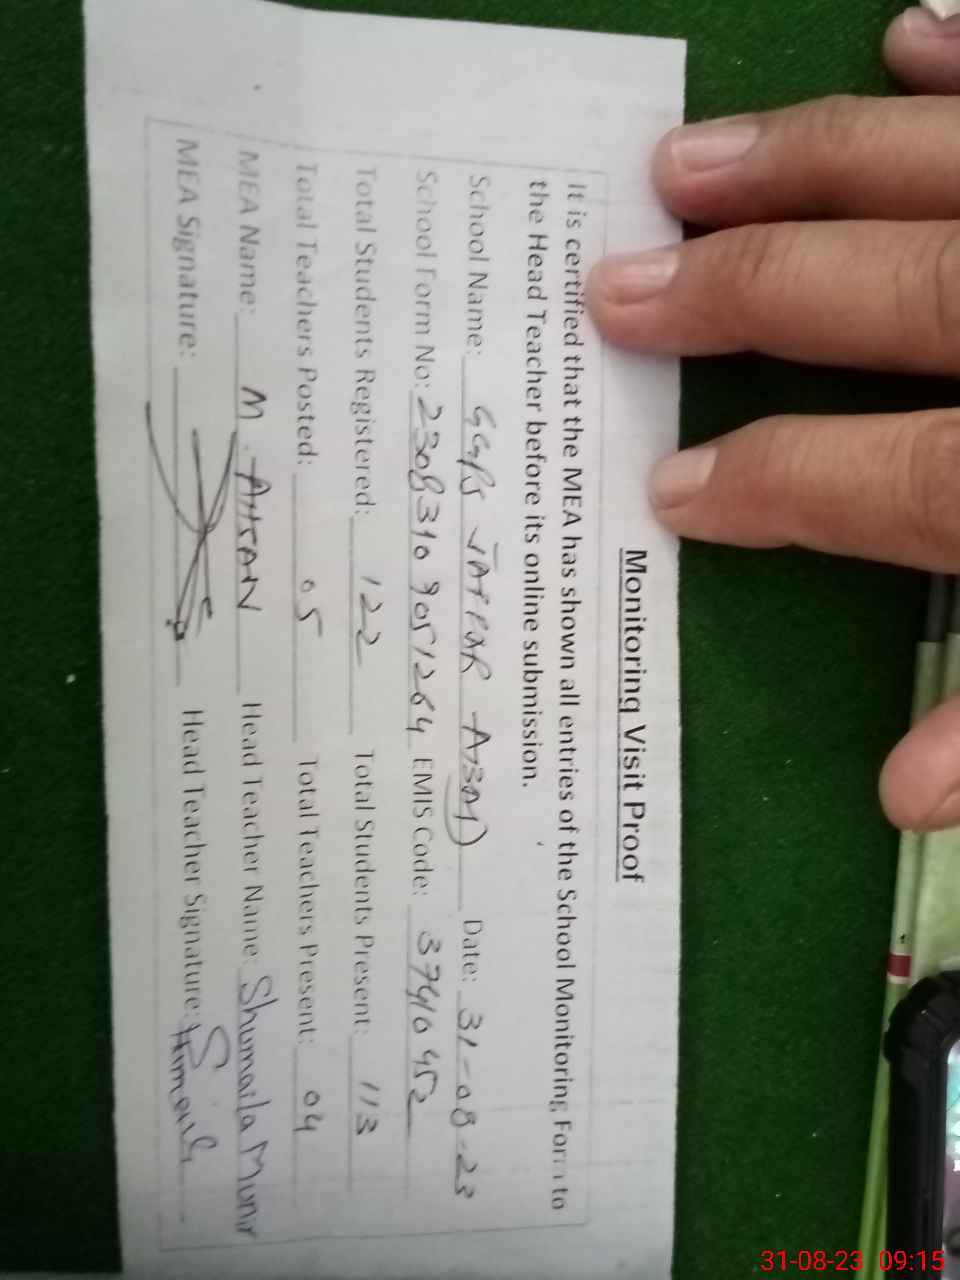 Monitoring Visit Proof
It is certified that the MEA has shown all entries of the School Monitoring Form to
the Head Teacher before its online submission.
School Name: GGPS JAFFAR Date: 31-08-23
School Form No: 2308310 9051264 EMIS Code: 37410452
Total Students Registered: 122 Total Students Present: 113
Total Teachers Posted: 05 Total Teachers Present: 04
MEA Name: M. AHSAN Head Teacher Name: Shumaila Munir
MEA Signature: Head Teacher Signature:
31-08-23 09:15